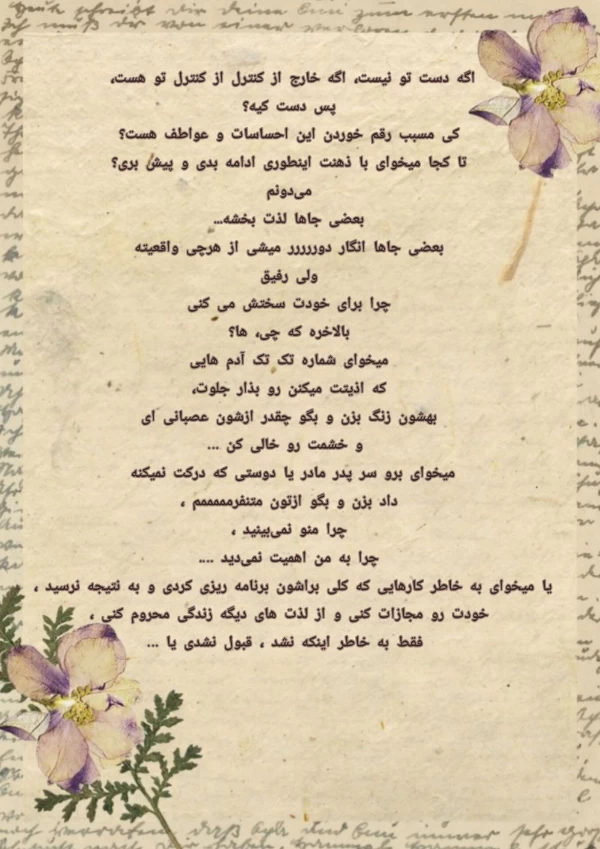 اگه دست تو نیست، اگه خارج از کنترل از کنترل تو هست،
پس دست کیه؟
کی مسبب رقم خوردن این احساسات و عواطف هست؟
تا کجا میخوای با ذهنت اینطوری ادامه بدی و پیش بری؟
می‌دونم
بعضی جاها لذت بخشه...
بعضی جاها انگار دوررررر میشی از هرچی واقعیته
ولی رفیق
چرا برای خودت سختش می کنی
بالاخره که چی، ها؟
میخوای شماره تک تک آدم هایی
که اذیتت میکنن رو بذار جلوت،
بهشون زنگ بزن و بگو چقدر ازشون عصبانی ای
و خشمت رو خالی کن ...
میخوای برو سر پدر مادر یا دوستی که درکت نمیکنه
داد بزن و بگو ازتون متنفرمممممم ،
چرا منو نمی‌بینید ،
چرا به من اهمیت نمی‌دید ....
یا میخوای به خاطر کارهایی که کلی براشون برنامه ریزی کردی و به نتیجه نرسید ،
خودت رو مجازات کنی و از لذت های دیگه زندگی محروم کنی ،
فقط به خاطر اینکه نشد ، قبول نشدی یا ...